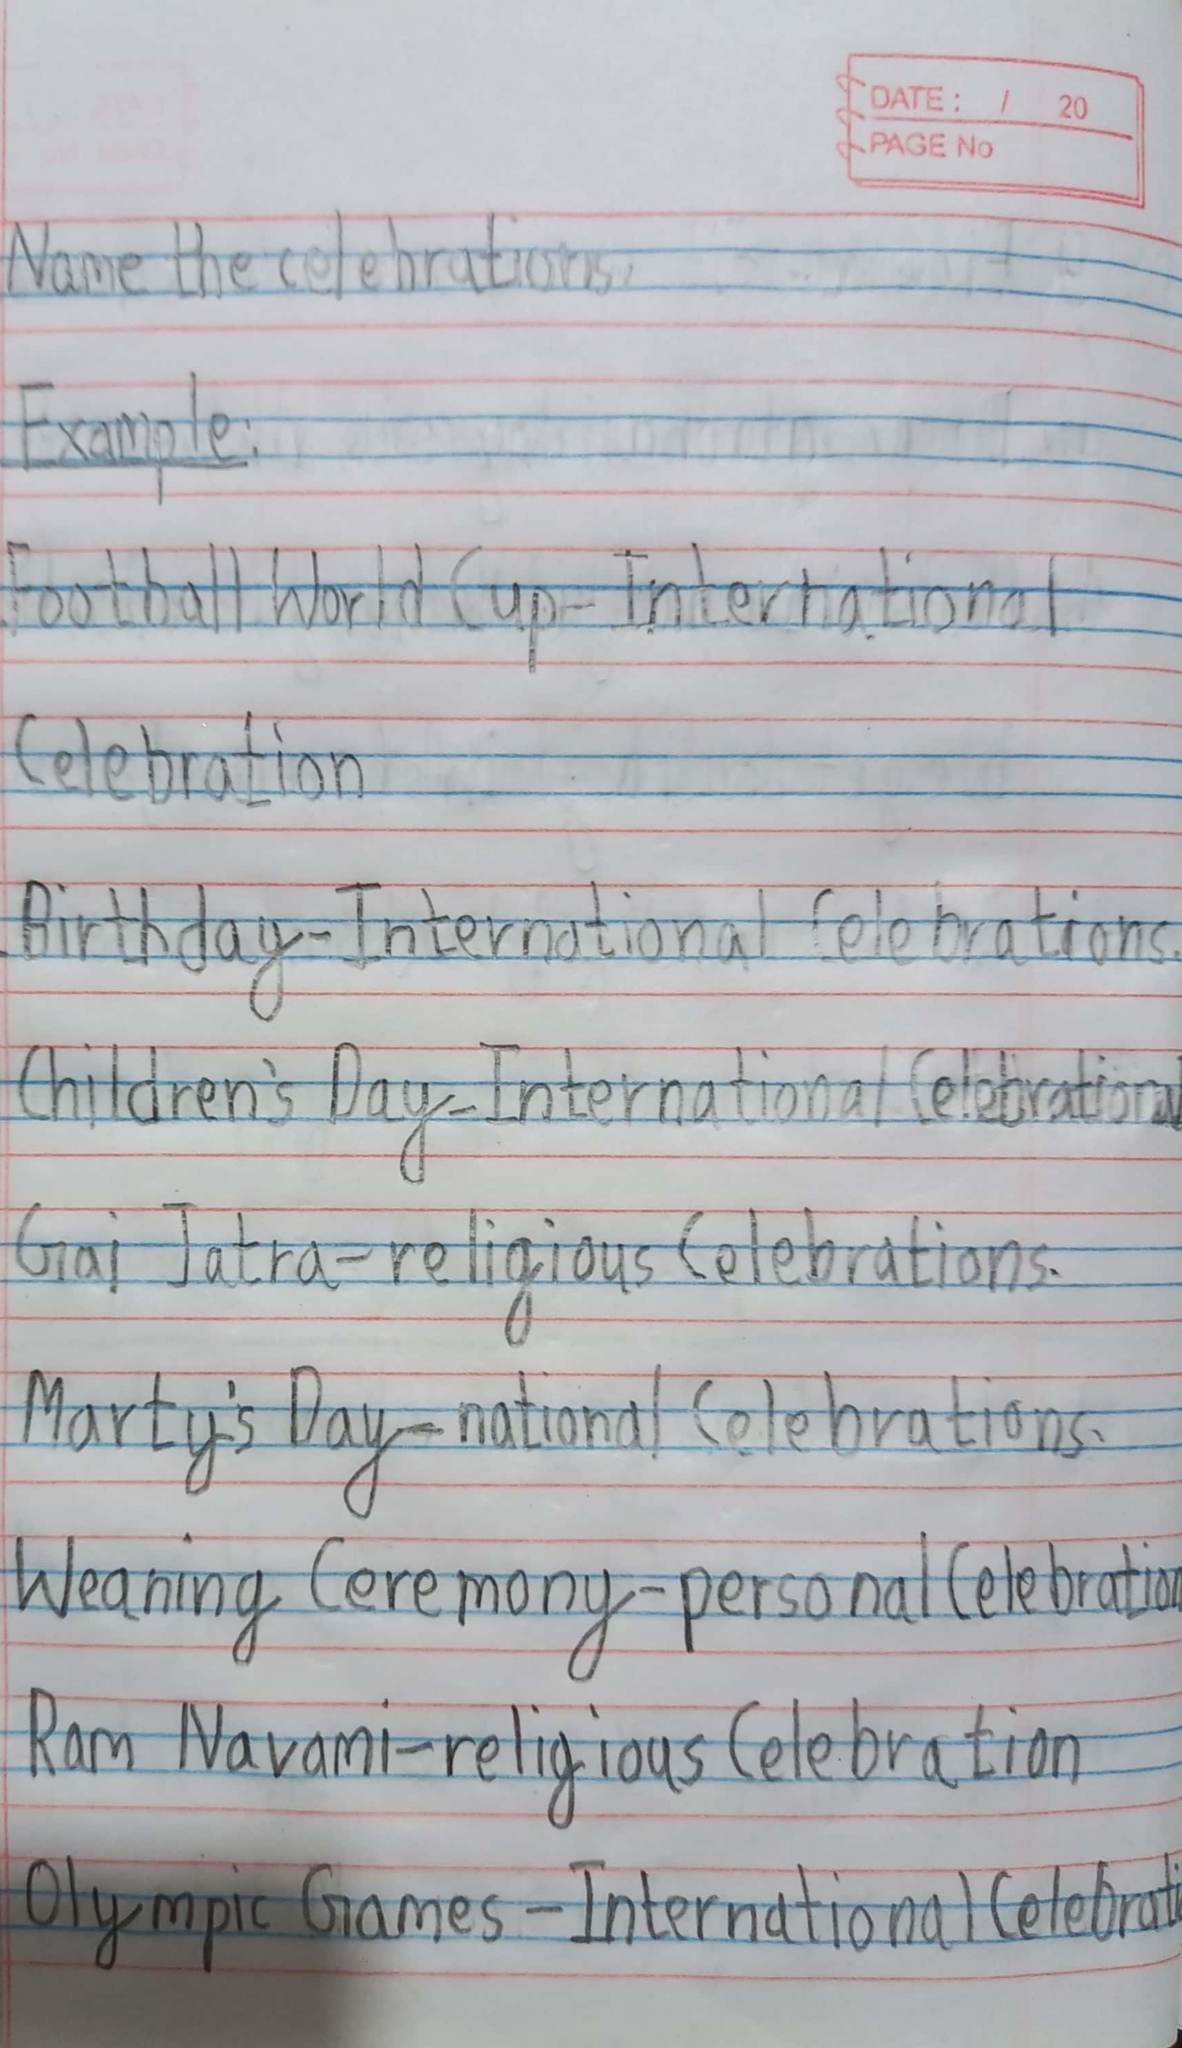 DATE: / 20
PAGE No
Name the celebrations.
Example:
Football World Cup-International
Celebration
Birthday-International Celebrations.
Children's Day-International Celebrational
Gai Jatra-religious Celebrations.
Marty's Day-national Celebrations.
Weaning Ceremony-personal Celebration
Ram Navami-religious Celebration
Olympic Games-International Celebrati